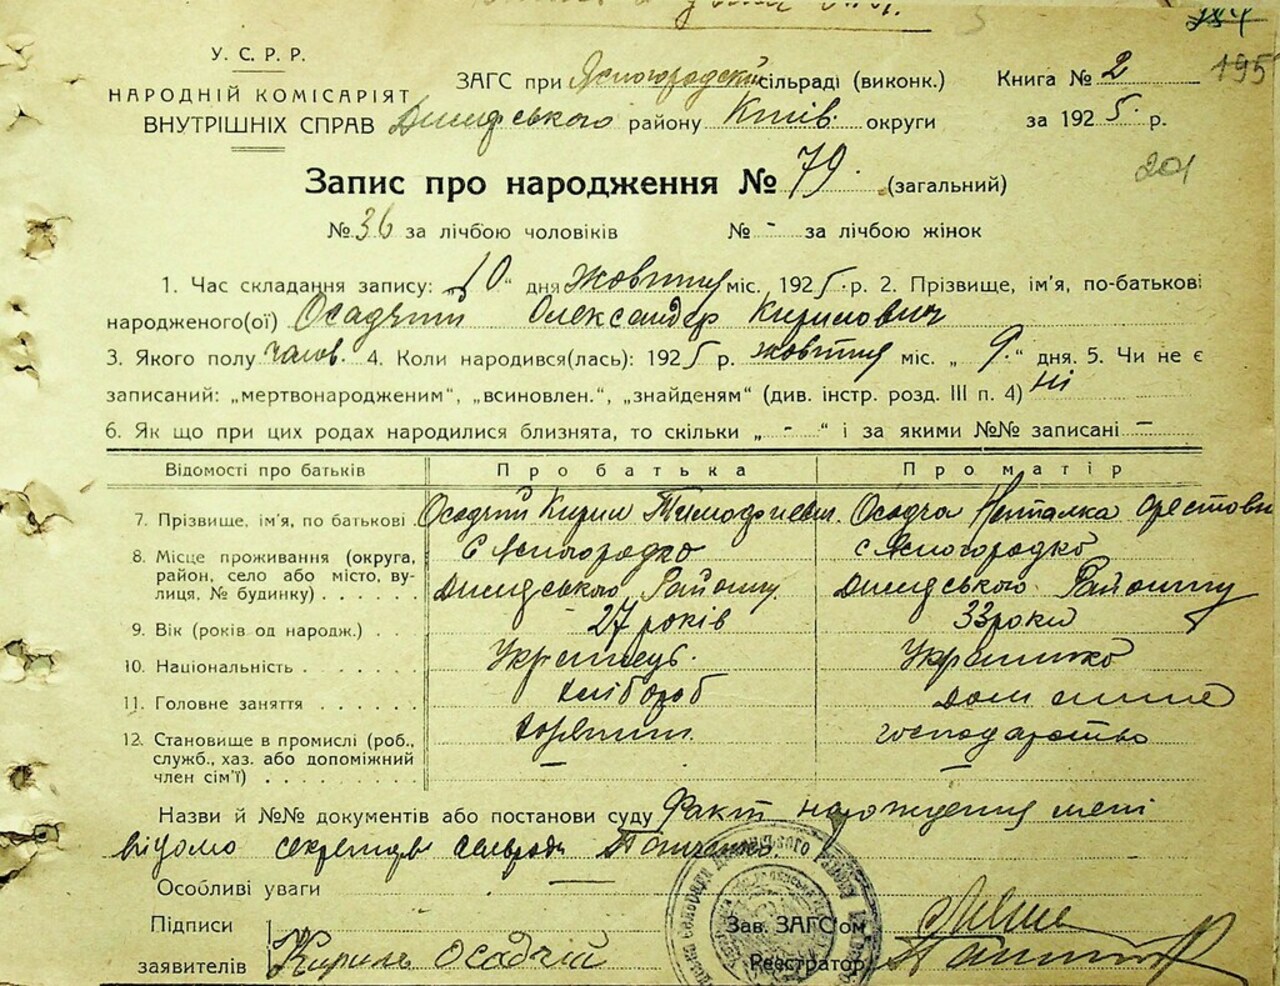 У. С. Р. Р.
НАРОДНІЙ КОМІСАРІЯТ
ВНУТРІШНІХ СПРАВ
ЗАГС при Ясногородській сільраді (виконк.) Книга № 2 195
району Київ. округи за 1925 р.
Запис про народження № 79. (загальний) 201
№ 36 за лічбою чоловіків № - за лічбою жінок
1. Час складання запису: „10“ дня жовтня міс. 1925 р. 2. Прізвище, ім'я, по-батькові
народженого(ої) Осадчий Олександер Кирилович
3. Якого полу чолов. 4. Коли народився(лась): 1925 р. жовтня міс. „ 9. “ дня. 5. Чи не є
записаний: „мертвонародженим“, „всиновлен.“, „знайденям“ (див. інстр. розд. III п. 4) ні
6. Як що при цих родах народилися близнята, то скільки „ - “ і за якими №№ записані —
Відомості про батьків Про батька Про матір
7. Прізвище, ім'я, по батькові . Осадчий Кирил Тимофиевич. Осадча Наталка Орестовн
8. Місце проживання (округа, с Ясногородка с Ясногородка
район, село або місто, ву-
лиця, № будинку) . . . . . . Району Району
9. Вік (років од народж.) . . . 27 років 33 роки
10. Національність . . . . . . Українець. Українка
11. Головне заняття . . . . . . хлібороб домашнє
12. Становище в промислі (роб., господарство
служб., хаз. або допоміжний
член сім'ї) . . . . . . . . .
Назви й №№ документів або постанови суду Факт нарождения мені
відомо секретарь сельради
Особливі уваги
Підписи Зав. ЗАГС'ом
заявителів Кирилъ Осадчій Реєстратор